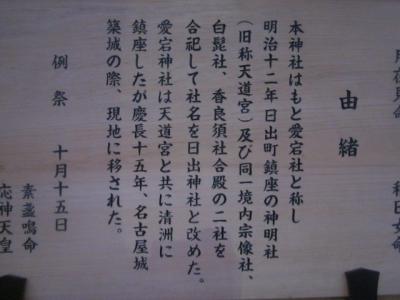 由緒
本神社はもと愛宕社と称し
明治十二年日出町鎮座の神明社
(旧称天道宮)及び同一境内宗像社、
白髭社、香良須社合殿の二社を
合祀して社名を日出神社と改めた。
愛宕神社は天道宮と共に清洲に
鎮座したが慶長十五年、名古屋城
築城の際、現地に移された。
例祭 十月十五日
素盞鳴命
応神天皇